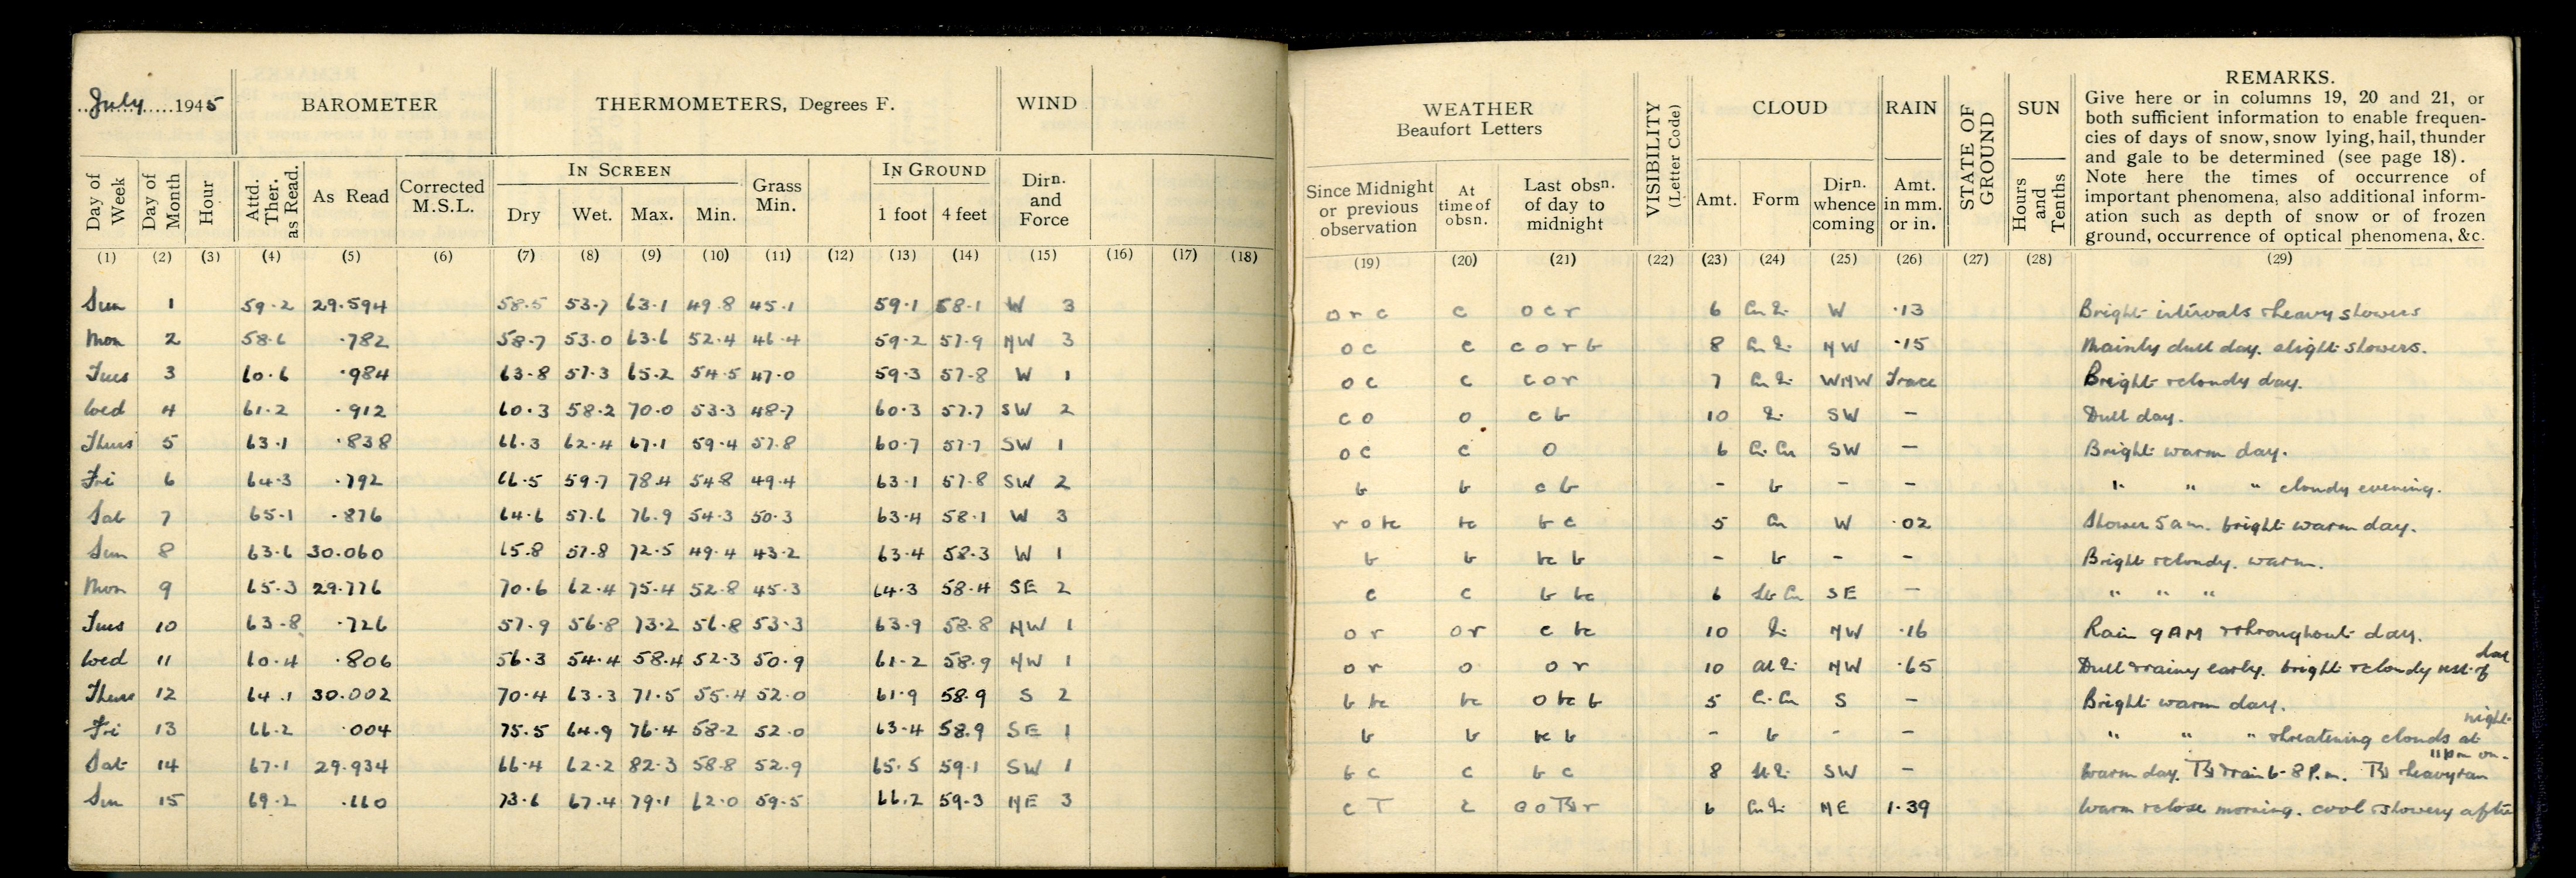 July 1945 BAROMETER THERMOMETERS, Degrees F. WIND
IN SCREEN IN GROUND
Day of Week Day of Month Hour Attd. Ther. as Read. As Read Corrected M.S.L. Dry Wet. Max. Min. Grass Min. 1 foot 4 feet Dirn. and Force
(1) (2) (3) (4) (5) (6) (7) (8) (9) (10) (11) (12) (13) (14) (15) (16) (17) (18)
Sun 1 59.2 29.594 58.5 53.7 63.1 49.8 45.1 59.1 58.1 W 3
Mon 2 58.6 .782 58.7 53.0 63.6 52.4 46.4 59.2 57.9 NW 3
Tues 3 60.6 .984 63.8 57.3 65.2 54.5 47.0 59.3 57.8 W 1
Wed 4 61.2 .912 60.3 58.2 70.0 53.3 48.7 60.3 57.7 SW 2
Thurs 5 63.1 .838 66.3 62.4 67.1 59.4 57.8 60.7 57.7 SW 1
Fri 6 64.3 .792 66.5 59.7 78.4 54.8 49.4 63.1 57.8 SW 2
Sat 7 65.1 .876 64.6 57.6 76.9 54.3 50.3 63.4 58.1 W 3
Sun 8 63.6 30.060 65.8 57.8 72.5 49.4 43.2 63.4 58.3 W 1
Mon 9 65.3 29.776 70.6 62.4 75.4 52.8 45.3 64.3 58.4 SE 2
Tues 10 63.8 .726 57.9 56.8 73.2 56.8 53.3 63.9 58.8 NW 1
Wed 11 60.4 .806 56.3 54.4 58.4 52.3 50.9 61.2 58.9 NW 1
Thurs 12 64.1 30.002 70.4 63.3 71.5 55.4 52.0 61.9 58.9 S 2
Fri 13 66.2 .004 75.5 64.9 76.4 58.2 52.0 63.4 58.9 SE 1
Sat 14 67.1 29.934 66.4 62.2 82.3 58.8 52.9 65.5 59.1 SW 1
Sun 15 69.2 .660 73.6 67.4 79.1 62.0 59.5 66.2 59.3 NE 3
WEATHER Beaufort Letters VISIBILITY (Letter Code) CLOUD RAIN STATE OF GROUND SUN REMARKS.
Give here or in columns 19, 20 and 21, or
both sufficient information to enable frequen-
cies of days of snow, snow lying, hail, thunder
and gale to be determined (see page 18).
Note here the times of occurrence of
important phenomena, also additional inform-
ation such as depth of snow or of frozen
ground, occurrence of optical phenomena, &c.
Since Midnight or previous observation At time of obsn. Last obsn. of day to midnight Amt. Form Dirn. whence coming Amt. in mm. or in. Hours and Tenths
(19) (20) (21) (22) (23) (24) (25) (26) (27) (28) (29)
o r c c o c r 6 W .13 Bright intervals & heavy showers
o c c c o r b 8 NW .15 Mainly dull day. slight showers.
o c c c o r 7 WNW Trace Bright & cloudy day.
c o o c b 10 SW – Dull day.
o c c o 6 SW – Bright warm day.
b b c b – b – – " " " cloudy evening.
r o bc bc b c 5 Cu W .02 Shower 5 am. bright warm day.
b b bc b – b – – Bright & cloudy. warm.
c c b bc 6 St Cu SE – " " "
o r o r c bc 10 NW .16 Rain 9 AM & throughout day.
o r o o r 10 NW .65 Dull & rainy early. bright & cloudy rest of day
b bc bc o bc b 5 S – Bright warm day.
b b bc b – b – – " " " threatening clouds at night
b c c b c 8 SW – Warm day. & rain 6-8 P.m. & heavy rain 11pm on.
c T 6 NE 1.39 Warm & close morning. cool & showery after